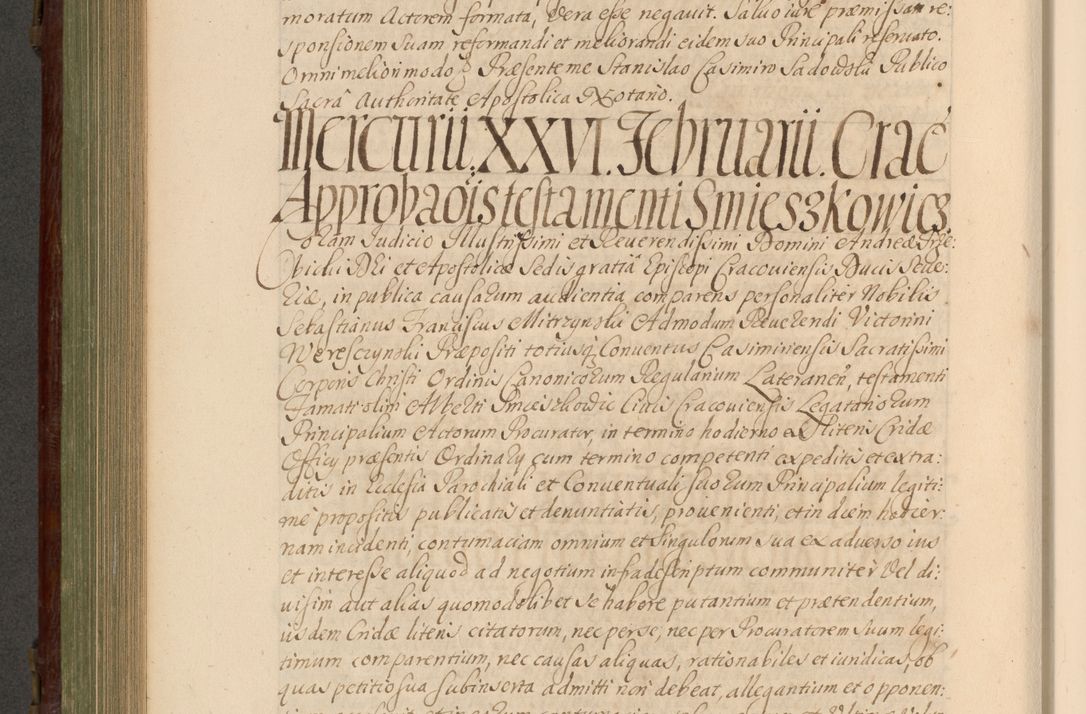 moratum Actorem formata, Vera esse negauit. Saluo iure præmissam re:
sponsionem suam reformandi et meliorandi eidem suo Principali reseruato.
Omni meliori modo Præsente me Stanislao Casimiro Sadowski Publico
Sacrâ Authoritate Apostolica Notario.
Mercurii XXVI. Februarii. Crac̃
Approbaõis testamenti Smieszkowicz
Coram Iudicio Illustrissimi et Reuerendissimi Domini Andreæ Trze:
bicki Dei et Apostolicæ Sedis gratiâ Episcopi Cracouiensis Ducis Seue:
riæ, in publica causarum audientia comparens personaliter Nobilis
Sebastianus Franciscus Mitrzynski Admodum Reuerendi Victorini
Weresczynski Præpositi totiusq; Conuentus Casimiriensis Sacratissimi
Corporis Christi Ordinis Canonicorum Regularium Lateraneñ, testamenti
Famati olim Alberti Smieszkowic Ciuis Cracouiensis Legatariorum
Principalium Actorum Procurator, in termino hodierno ex litteris Cridæ
Officij præsentis Ordinarij cum termino competenti expeditis et extra:
ditis in Ecclesia Parochiali et Conuentuali suorum Principalium legiti:
me propositis publicatis et denuntiatis, prouenienti, et in diem hodier:
nam incidenti, contumaciam omnium et singulorum sua ex aduerso ius
et interesse aliquod ad negotium infradescriptum communiter Vel di:
uisim aut alias quomodolibet se habere putantium et prætendentium,
iisdem Cridæ literis citatorum, nec per se, nec per Procuratorem suum legi:
timum comparentium, nec causas aliquas, rationabiles et iuridicas, ob
quas petitio sua subinserta admitti non debeat, allegantium et opponen: